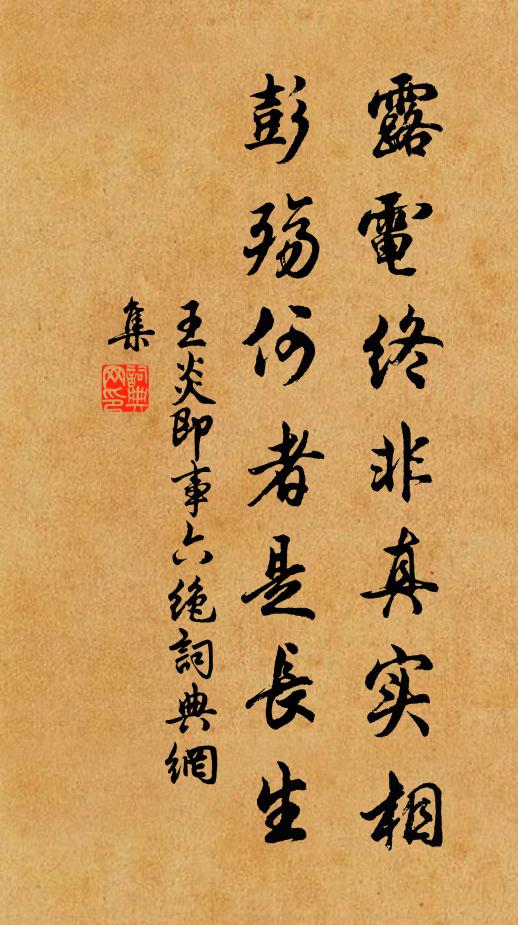 露電終非真实相
彭殤何者是長生
王炎即事六绝詞典網
集
詞典网印